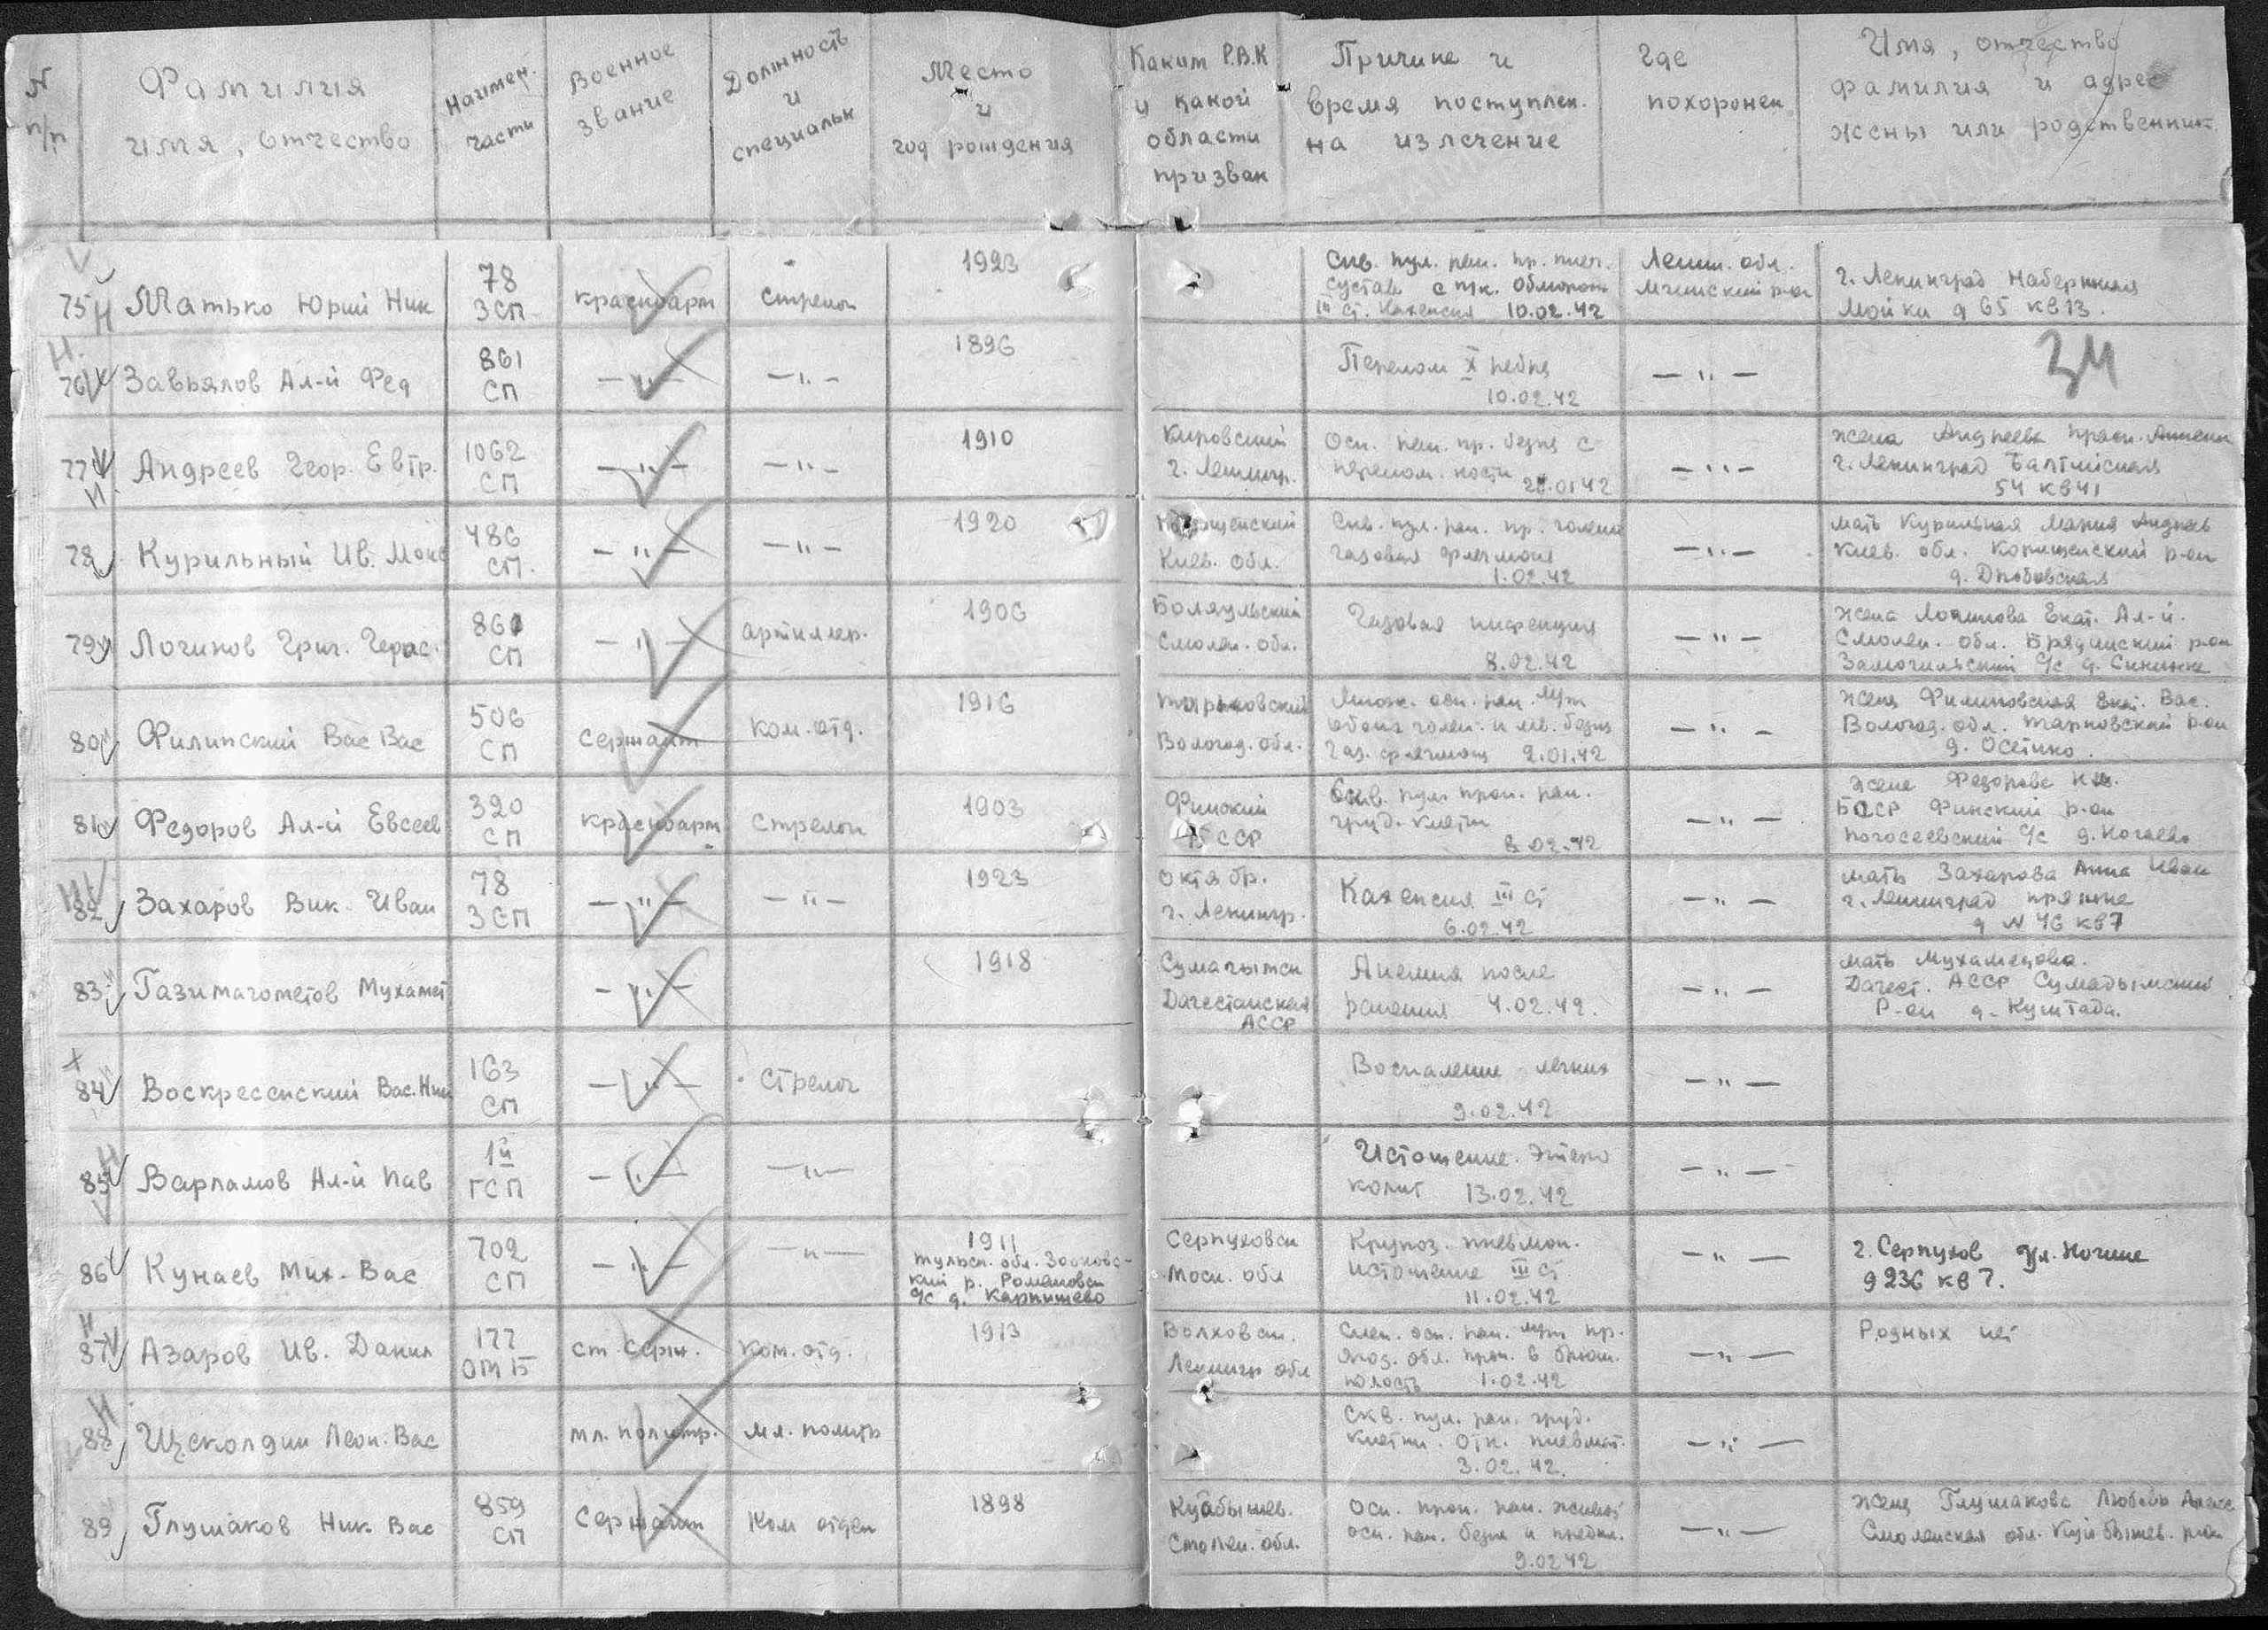 N п/п
Фамилия имя, отчество
Наимен. части
Военное звание
Должность и специальн
Место и год рождения
Каким Р.В.К и какой области призван
Причина и время поступлен. на излечение
Где похоронен
Имя, отчество фамилия и адрес жены или родственник.
75 Матько Юрий Ник
78 ЗСП
красноарм
стрелок
1923
Скв. пул. ран. пр. плеч. сустава с п/к. обморож III ст. Кахексия 10.02.42
Ленин. обл. Мгинский р-он
г. Ленинград Набережная Мойки д 65 кв 13.
76 Завьялов Ал-й Фед
861 СП
— " —
— " —
1896
Перелом X ребра 10.02.42
— " —
ЗМ
77 Андреев Геор. Евтр.
1062 СП
— " —
— " —
1910
Кировский г. Ленингр.
Оск. ран. пр. бедра с перелом. кости 01 42
— " —
жена Андреева Праск.
г. Ленинград Балтийская 54 кв 41
78 Курильный Ив. Моис
486 СП.
— " —
— " —
1920
Киев. обл.
Скв. пул. ран. пр. голени газовая флегмона 1.02.42
— " —
мать Курильная Мария Андреев
Киев. обл. р-он
79 Логинов Григ. Герас.
861 СП
— " —
артиллер.
1906
Смолен. обл.
Газовая инфекция 8.02.42
— " —
жена Логинова Екат. Ал-й.
Смолен. обл. р-он
с/с д.
80 Филипский Вас Вас
506 СП
Сержант
Ком. отд.
1916
Вологод. обл.
Множ. оск. ран. мяг обоих голен. и лев. бедра газ. флегмона 2.01.42
— " —
жена Филиповская Екат. Вас.
Вологод. обл. р-он
д. Осетико.
81 Федоров Ал-й Евсеев
320 СП
Красноарм
Стрелок
1903
Финский БССР
Скв. пул. прон. ран. груд. клетки 8.02.42
— " —
жена Федорова
БССР Финский р-он
с/с д.
82 Захаров Вик Иван
78 ЗСП
— " —
— " —
1923
Октябр. г. Ленингр.
Кахексия III ст 6.02.42
— " —
мать Захарова Анна Иван
г. Ленинград пряжка
д N 46 кв 7
83 Газимагометов Мухамет
— " —
1918
Дагестанская АССР
Анемия после ранения 4.02.42.
— " —
мать Мухамедова.
Дагест. АССР
Р-он д. Куштада.
84 Воскресенский Вас. Ник
163 СП
— " —
Стрелок
Воспаление легких 9.02.42
— " —
85 Варламов Ал-й Пав
1й ГСП
— " —
— " —
Истощение. Энтеро колит 13.02.42
— " —
86 Кунаев Мих. Вас
702 СП
— " —
— " —
1911 Тульск. обл. р. Романовск с/с д. Карпищево
Серпуховск Моск. обл
Крупоз. пневмон. истощение III ст 11.02.42
— " —
г. Серпухов ул. Ногина д 236 кв 7.
87 Азаров Ив. Данил
177 ОТБ
ст. Серж.
Ком. отд.
1913
Волховск. Ленингр обл
Слеп. оск. ран. мяг пр. обл. прон. в брюш. полость 1.02.42
— " —
Родных нет
88 Щеколдин Леон. Вас
мл. политр.
мл. политр
Скв. пул. ран. груд. клетки. отк. пневмот. 3.02.42.
— " —
89 Глушаков Ник Вас
859 СП
Сержант
Ком отдел
1898
Куйбышев. Смолен. обл.
Оск. прон. ран. живот оск. ран. бедра и предпл. 9.02 42
— " —
жена Глушакова Любовь
Смоленская обл. Куйбышев. р-он